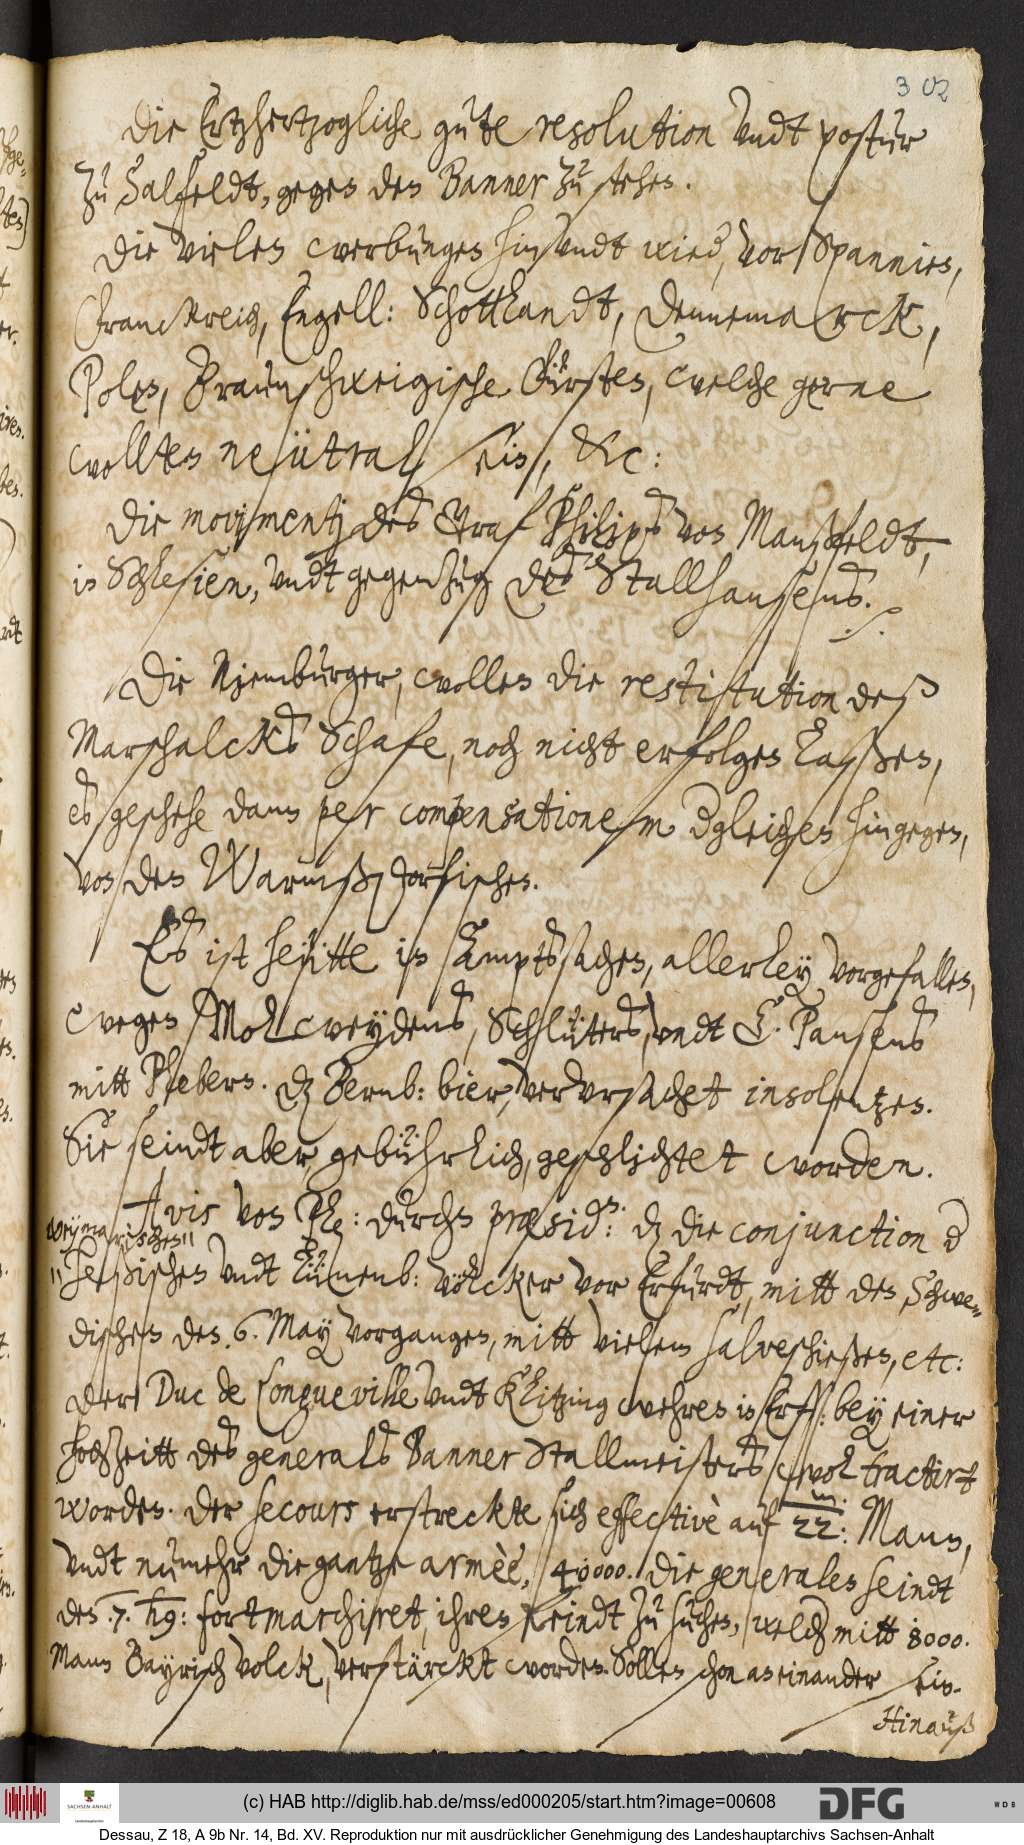 302
Die Ertzhertzogliche gute resolution undt postur
zu Salfeldt, gegen den Banner zu stehen.
Die vielen werbungen hin undt wied, vor Spannien,
Franckreich, Engell: Schottlandt, Dennemarck,
Polen, Braunschweigische Fürsten, welche gerne
wollten neütral sein, &c:
Die movimentj des Graf Philips von Manßfeldt,
in Schlesien, undt gegenzug des Stallhansens.
Die Njemburger, wollen die restitution deß
Marschalcks Schafe, noch nicht erfolgen laßen,
es geschehe dann per compensationem dgleichen hingegen,
von den Warmßdorfischen.
Es ist heütte in Amptssachen, allerley vorgefallen,
wegen Molweydens, Schlüters, undt C. Pausens
mitt Plebern. Dz Bernb: bier, verursachet insolentzen.
Sie seindt aber, gebührlich, geschlichtet worden.
Avis von Ple: durchn præsidn: dz die conjunction d
weymarischen
Heßischen undt Lünenb: völcker vor Erfurdt, mitt den Schwe-
dischen den 6. May vorgangen, mitt vielem salveschießen, etc:
Der Duc de Longueville undt Klitzing wehren in Erff: bey einer
hochzeitt des generals Banner Stallmeisters wol tractirt
worden. Der secours erstreckte sich effectivè auf 22: m. Mann,
undt nunmehr die gantze armèe, 40000. die generales seindt
den .7. hq: fortmarchiret, ihren Feindt zu suchen, welch mitt 8000.
Mann Bayrisch volck, verstärckt worden. Sollen schon an einander sein.
Hinauß
(c) HAB http://diglib.hab.de/mss/ed000205/start.htm?image=00608
SACHSEN-ANHALT
Landeshauptarchiv
DFG
WDB
Dessau, Z 18, A 9b Nr. 14, Bd. XV. Reproduktion nur mit ausdrücklicher Genehmigung des Landeshauptarchivs Sachsen-Anhalt